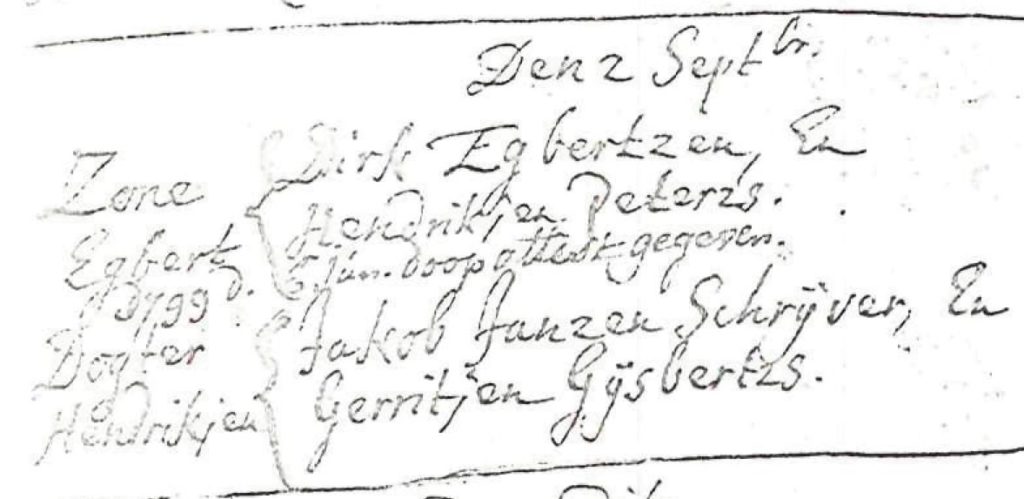 Den 2 Sept br.
Zone { Dirk Egbertzen, En
Egbert { Hendrikjen Peterzs.
1799 d. 6 Jun. doop attest gegeven.
Dogter { Jakob Janzen Schrÿver, En
Hendrikjen { Gerritjen Gÿsbertzs.